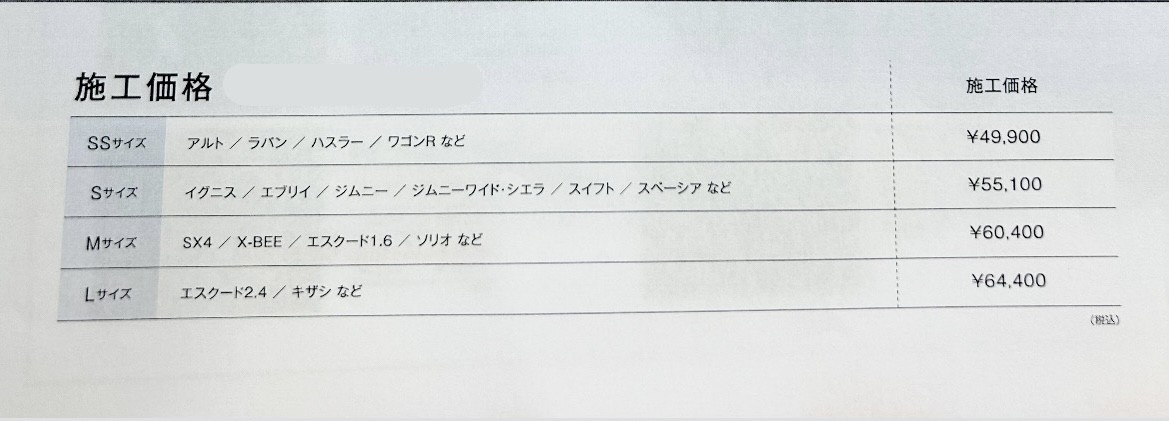 施工価格 施工価格
SSサイズ アルト ／ ラパン ／ ハスラー ／ ワゴンR など ¥49,900
Sサイズ イグニス ／ エブリイ ／ ジムニー ／ ジムニーワイド・シエラ ／ スイフト ／ スペーシア など ¥55,100
Mサイズ SX4 ／ X-BEE ／ エスクード1.6 ／ ソリオ など ¥60,400
Lサイズ エスクード2.4 ／ キザシ など ¥64,400
(税込)